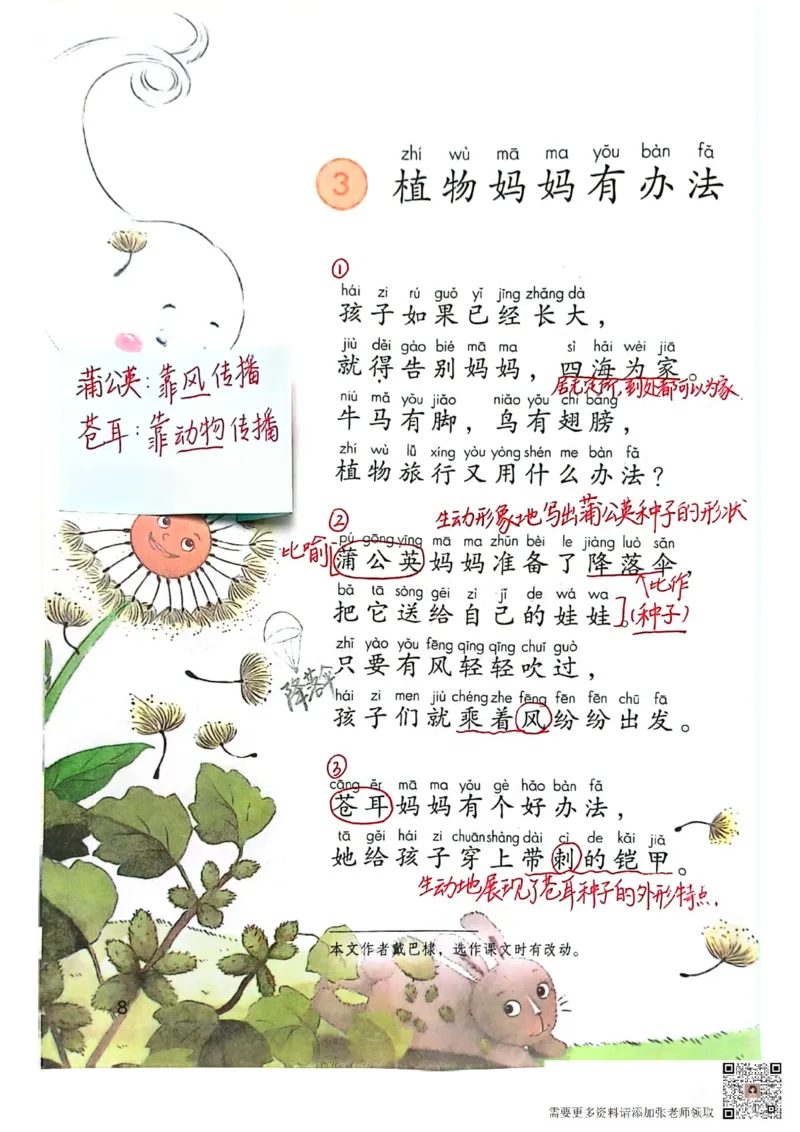 zhí wù mā ma yǒu bàn fǎ
3 植物妈妈有办法
①
hái zi rú guǒ yǐ jīng zhǎng dà
孩子如果已经长大，
jiù děi gào bié mā ma sì hǎi wéi jiā
就得告别妈妈，四海为家。
居无定所，到处都可以为家.
niú mǎ yǒu jiǎo niǎo yǒu chì bǎng
牛马有脚，鸟有翅膀，
zhí wù lǚ xíng yòu yòng shén me bàn fǎ
植物旅行又用什么办法？
蒲公英：靠风传播
苍耳：靠动物传播
② 生动形象地写出蒲公英种子的形状
pú gōng yīng mā ma zhǔn bèi le jiàng luò sǎn
比喻 蒲公英妈妈准备了降落伞，
比作
bǎ tā sòng gěi zì jǐ de wá wa
把它送给自己的娃娃。(种子)
zhǐ yào yǒu fēng qīng qīng chuī guò
只要有风轻轻吹过，
降落伞
hái zi men jiù chéng zhe fēng fēn fēn chū fā
孩子们就乘着风纷纷出发。
③
cāng ěr mā ma yǒu gè hǎo bàn fǎ
苍耳妈妈有个好办法，
tā gěi hái zi chuān shàng dài cì de kǎi jiǎ
她给孩子穿上带刺的铠甲。
生动地展现了苍耳种子的外形特点.
本文作者戴巴棣，选作课文时有改动。
8
需要更多资料请添加张老师领取